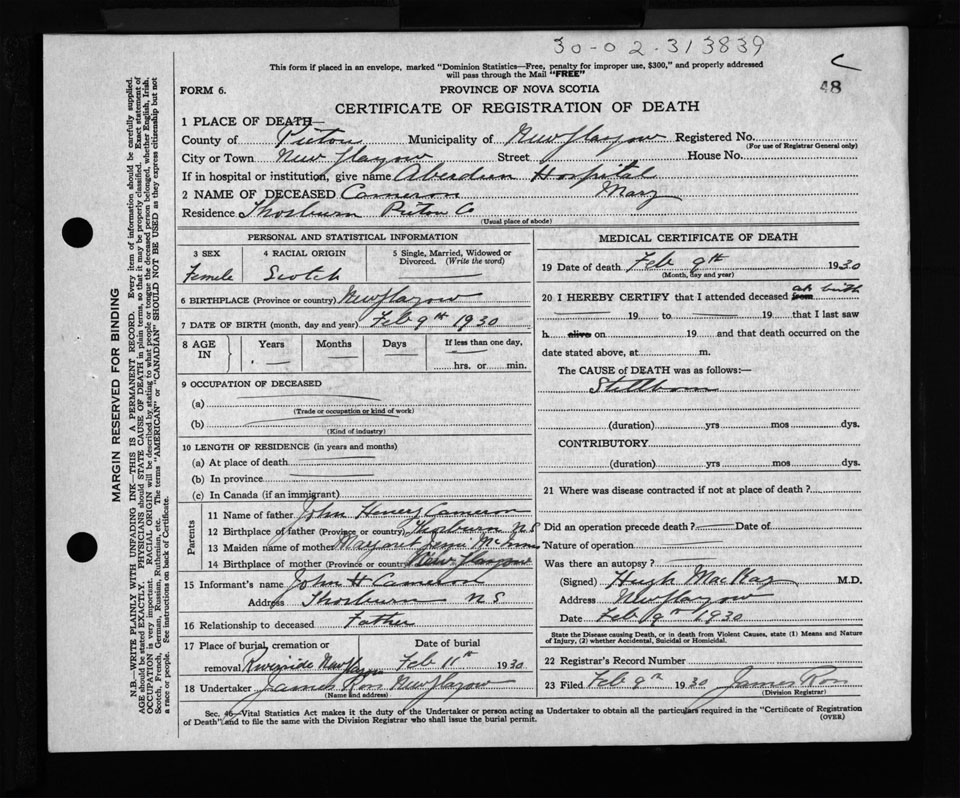 30-02-313839
This form if placed in an envelope, marked "Dominion Statistics—Free, penalty for improper use, $300," and properly addressed
will pass through the Mail "FREE"
C
48
FORM 6.
PROVINCE OF NOVA SCOTIA
CERTIFICATE OF REGISTRATION OF DEATH
1 PLACE OF DEATH—
County of Pictou Municipality of New Glasgow Registered No.
(For use of Registrar General only)
City or Town New Glasgow Street House No.
If in hospital or institution, give name Aberdeen Hospital
2 NAME OF DECEASED Cameron Mary
Residence Thorburn Pictou Co
(Usual place of abode)
PERSONAL AND STATISTICAL INFORMATION
3 SEX 4 RACIAL ORIGIN 5 Single, Married, Widowed or
Divorced. (Write the word)
Female Scotch
6 BIRTHPLACE (Province or country) New Glasgow
7 DATE OF BIRTH (month, day and year) Feb 9th 1930
8 AGE IN Years Months Days If less than one day,
hrs. or min.
9 OCCUPATION OF DECEASED
(a)
(Trade or occupation or kind of work)
(b)
(Kind of industry)
10 LENGTH OF RESIDENCE (in years and months)
(a) At place of death
(b) In province
(c) In Canada (if an immigrant)
Parents
11 Name of father John Henry Cameron
12 Birthplace of father (Province or country) Thorburn NS
13 Maiden name of mother Margaret McInnis
14 Birthplace of mother (Province or country) New Glasgow
15 Informant's name John H Cameron
Address Thorburn NS
16 Relationship to deceased Father
17 Place of burial, cremation or Date of burial
removal Riverside New Glasgow Feb 11th 1930
18 Undertaker James Ross New Glasgow
(Name and address)
MEDICAL CERTIFICATE OF DEATH
19 Date of death Feb 9th 1930
(Month, day and year)
20 I HEREBY CERTIFY that I attended deceased from at birth
19 to 19 that I last saw
h alive on 19 and that death occurred on the
date stated above, at m.
The CAUSE of DEATH was as follows:—
Stillborn
(duration) yrs mos dys.
CONTRIBUTORY
(duration) yrs mos dys.
21 Where was disease contracted if not at place of death?
Did an operation precede death? Date of
Nature of operation
Was there an autopsy?
(Signed) Hugh MacKay M.D.
Address New Glasgow
Date Feb 9th 1930
State the Disease causing Death, or in death from Violent Causes, state (1) Means and Nature
of Injury, (2) whether Accidental, Suicidal or Homicidal.
22 Registrar's Record Number
23 Filed Feb 9th 1930 James Ross
(Division Registrar)
Sec. 46—Vital Statistics Act makes it the duty of the Undertaker or person acting as Undertaker to obtain all the particulars required in the "Certificate of Registration
of Death" and to file the same with the Division Registrar who shall issue the burial permit.
(OVER)
MARGIN RESERVED FOR BINDING
N.B.—WRITE PLAINLY WITH UNFADING INK—THIS IS A PERMANENT RECORD. Every item of information should be carefully supplied.
AGE should be stated EXACTLY. PHYSICIANS should STATE CAUSE OF DEATH in plain terms, so that it may be properly classified. Exact statement of
OCCUPATION is very important. RACIAL ORIGIN will be described by stating to what people or tongue the deceased person belonged, whether English, Irish,
Scotch, French, German, Russian, Ruthenian, etc. The terms "AMERICAN" or "CANADIAN" SHOULD NOT BE USED as they express citizenship but not
a race or people. See instructions on back of Certificate.